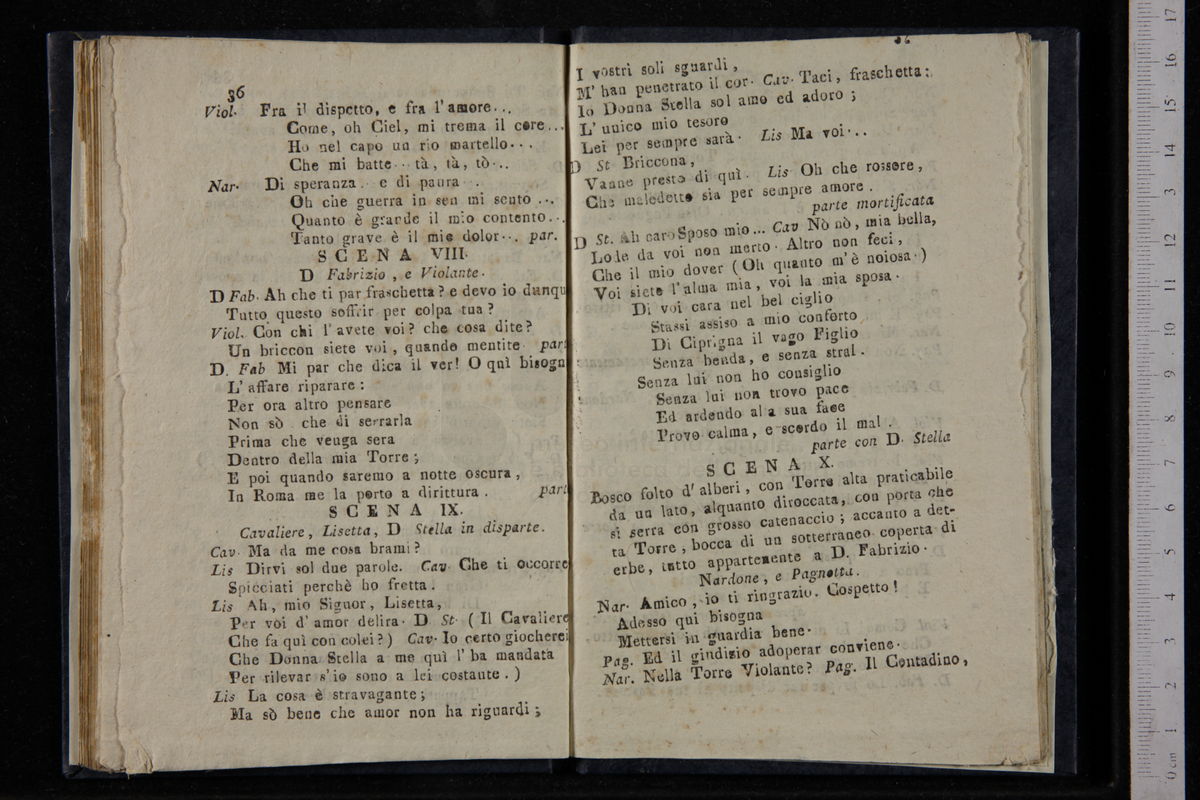 36
Viol. Fra il dispetto, e fra l'amore...
Come, oh Ciel, mi trema il core...
Ho nel capo un rio martello...
Che mi batte... tà, tà, tò...
Nar. Di speranza. e di paura ..
Oh che guerra in sen mi sento ...
Quanto è grande il mio contento...
Tanto grave è il mio dolor... par.
SCENA VIII.
D Fabrizio, e Violante.
D Fab. Ah che ti par fraschetta? e devo io dunqu
Tutto questo soffrir per colpa tua?
Viol. Con chi l'avete voi? che cosa dite?
Un briccon siete voi, quando mentite part
D. Fab Mi par che dica il ver! O quì bisogn
L'affare riparare:
Per ora altro pensare
Non sò che di serrarla
Prima che venga sera
Dentro della mia Torre;
E poi quando saremo a notte oscura,
In Roma me la porto a dirittura. part
SCENA IX.
Cavaliere, Lisetta, D Stella in disparte.
Cav. Ma da me cosa brami?
Lis Dirvi sol due parole. Cav. Che ti occorre
Spicciati perchè ho fretta.
Lis Ah, mio Signor, Lisetta,
Per voi d'amor delira. D St. (Il Cavaliere
Che fa quì con colei?) Cav. Io certo giocherei
Che Donna Stella a me quì l'ha mandata
Per rilevar s'io sono a lei costante.)
Lis La cosa è stravagante;
Ma sò bene che amor non ha riguardi;
I vostri soli sguardi,
M'han penetrato il cor. Cav. Taci, fraschetta:
Io Donna Stella sol amo ed adoro;
L'unico mio tesoro
Lei per sempre sarà. Lis Ma voi...
D St Briccona,
Vanne presto di quì. Lis Oh che rossore,
Che maledetto sia per sempre amore.
parte mortificata
D St. Ah caro Sposo mio... Cav Nò nò, mia bella,
Lode da voi non merto. Altro non feci,
Che il mio dover (Oh quanto m'è noiosa.)
Voi siete l'alma mia, voi la mia sposa.
Di voi cara nel bel ciglio
Stassi assiso a mio conforto
Di Ciprigna il vago Figlio
Senza benda, e senza stral.
Senza lui non ho consiglio
Senza lui non trovo pace
Ed ardendo al a sua face
Provo calma, e scordo il mal.
parte con D. Stella
SCENA X.
Bosco folto d'alberi, con Torre alta praticabile
da un lato, alquanto diroccata, con porta che
si serra con grosso catenaccio; accanto a det-
ta Torre, bocca di un sotterraneo coperta di
erbe, tutto appartenente a D. Fabrizio.
Nardone, e Pagnotta.
Nar. Amico, io ti ringrazio. Cospetto!
Adesso qui bisogna
Mettersi in guardia bene.
Pag. Ed il giudizio adoperar conviene.
Nar. Nella Torre Violante? Pag. Il Contadino,
0 cm 1 2 3 4 5 6 7 8 9 10 11 12 13 14 15 16 17